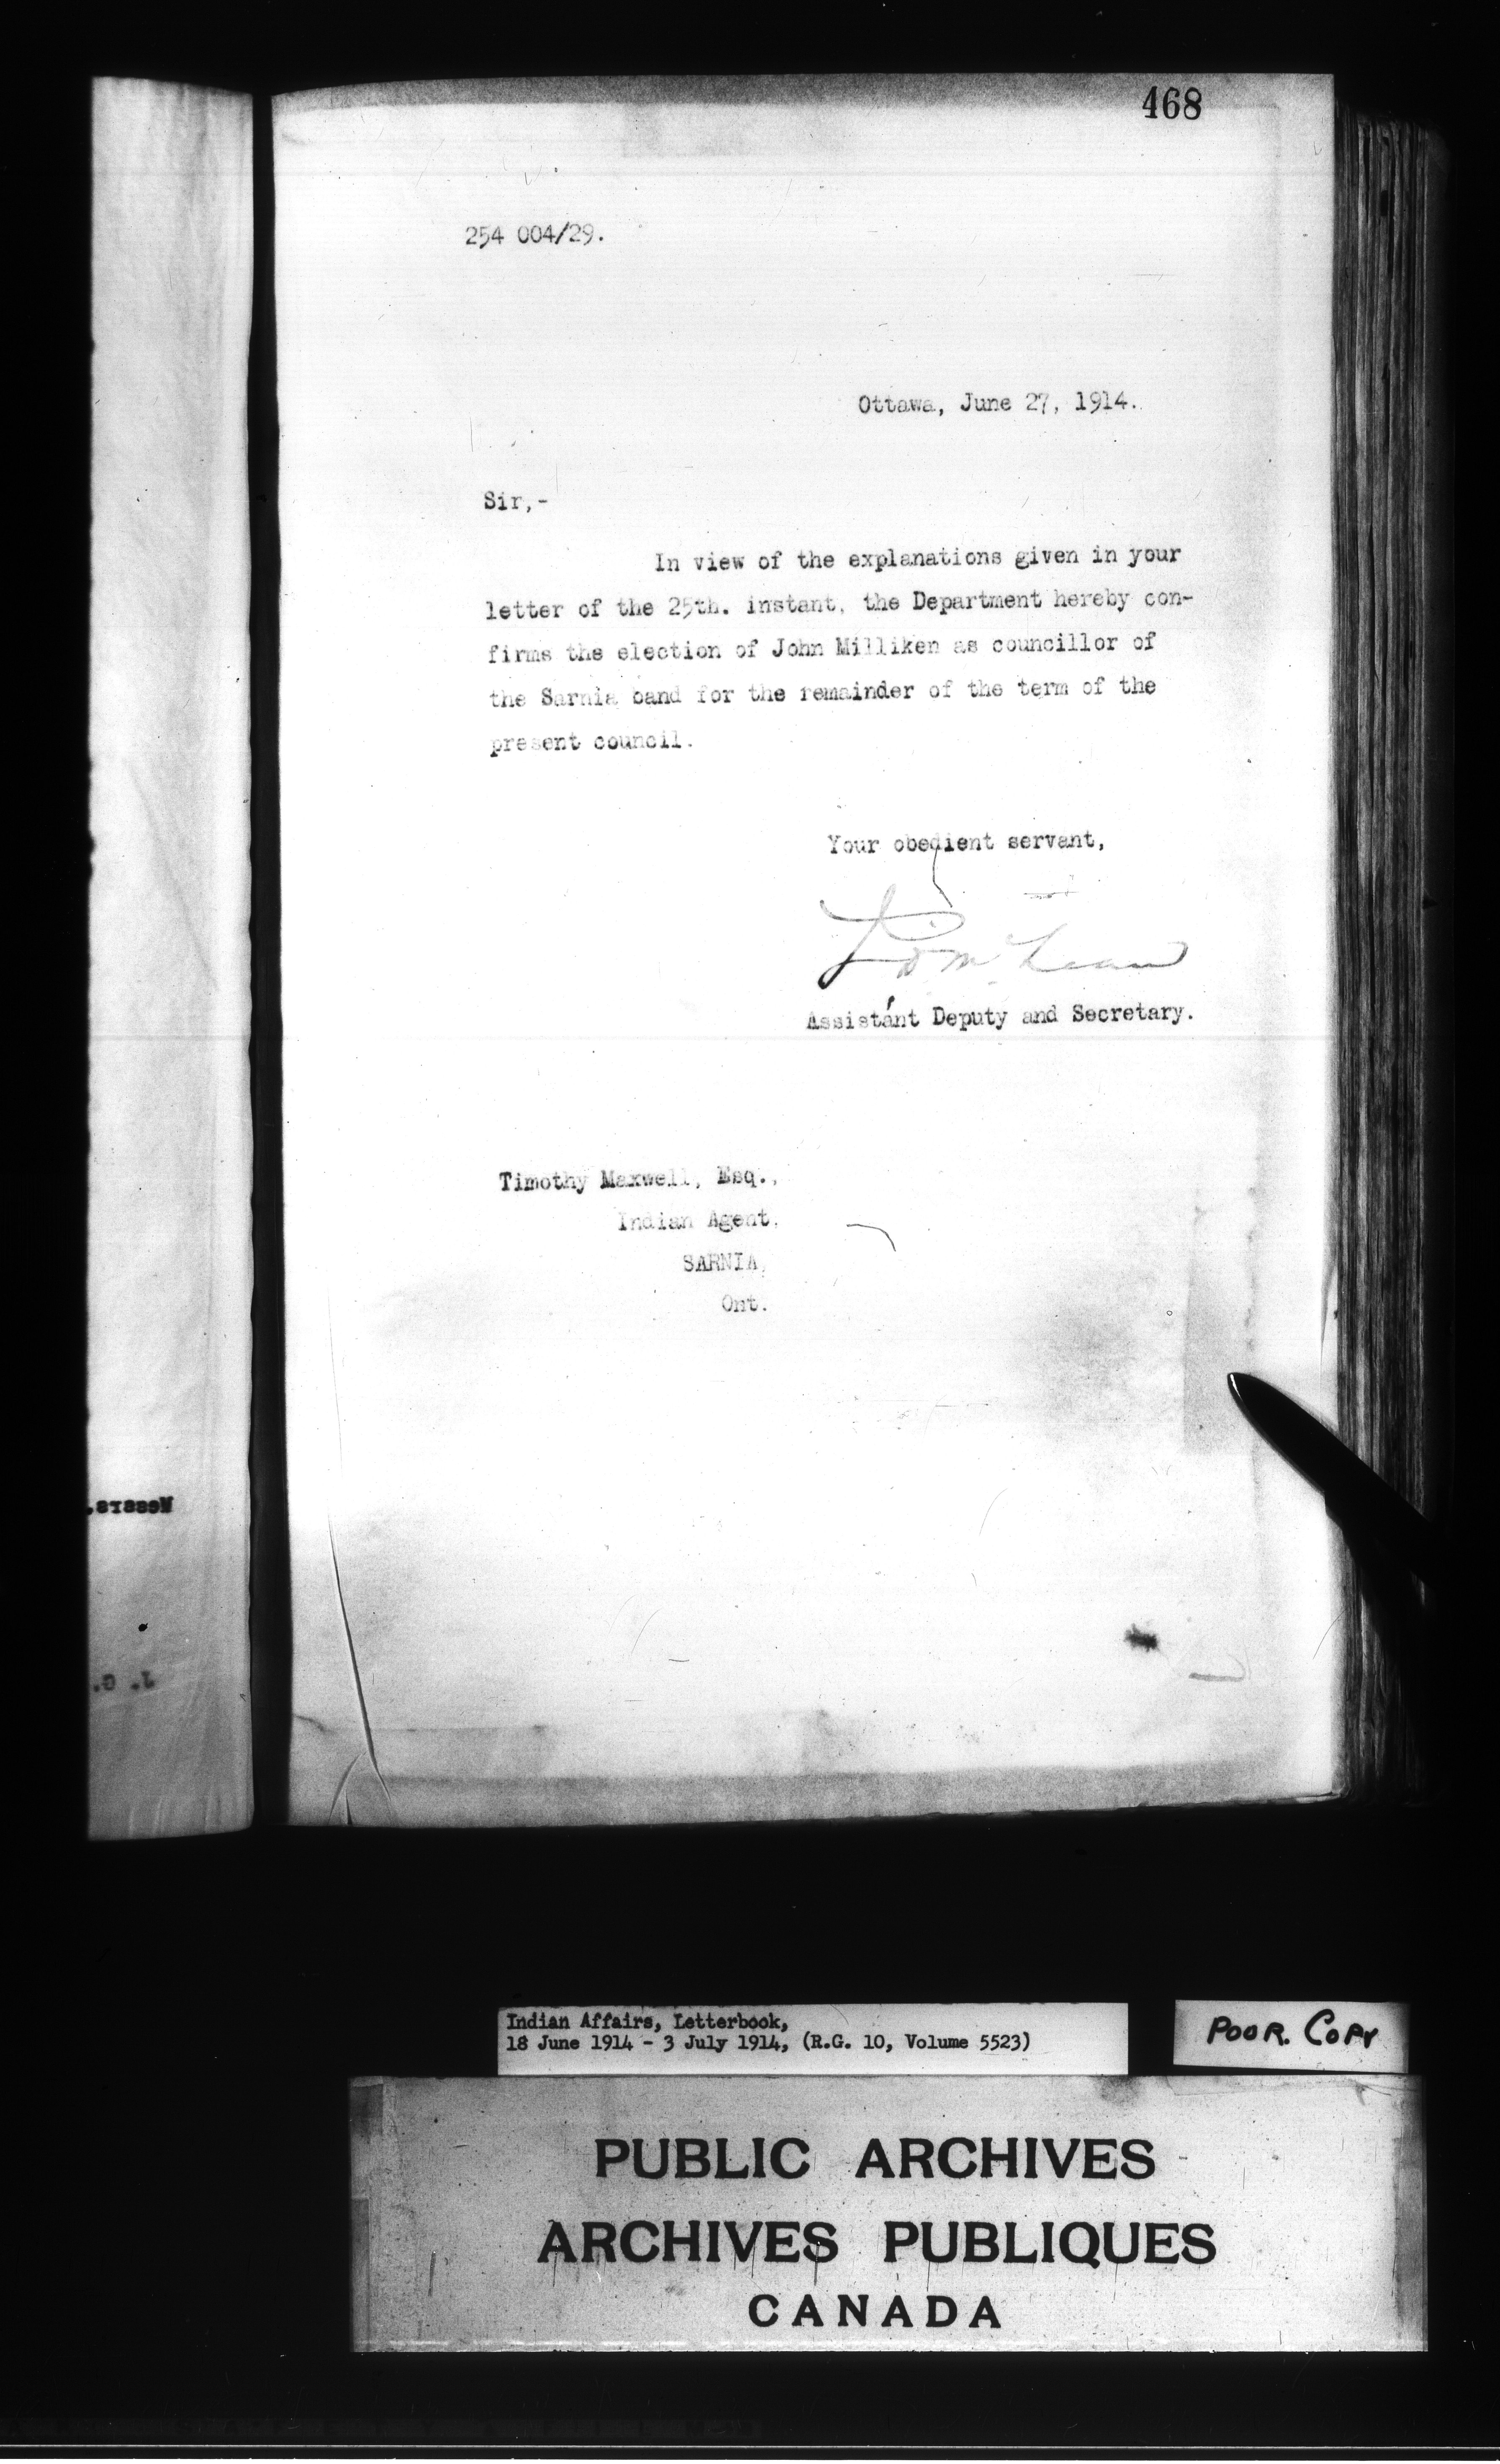 468
254 004/29.
Ottawa, June 27, 1914.
Sir,-
In view of the explanations given in your
letter of the 25th. instant, the Department hereby con-
firms the election of John Milliken as councillor of
the Sarnia band for the remainder of the term of the
present council.
Your obedient servant,
J D McLean
Assistant Deputy and Secretary.
Timothy Maxwell, Esq.,
Indian Agent,
SARNIA,
Ont.
Messrs.
J. G.
Indian Affairs, Letterbook,
18 June 1914 - 3 July 1914, (R.G. 10, Volume 5523)
POOR. COPY
PUBLIC ARCHIVES
ARCHIVES PUBLIQUES
CANADA